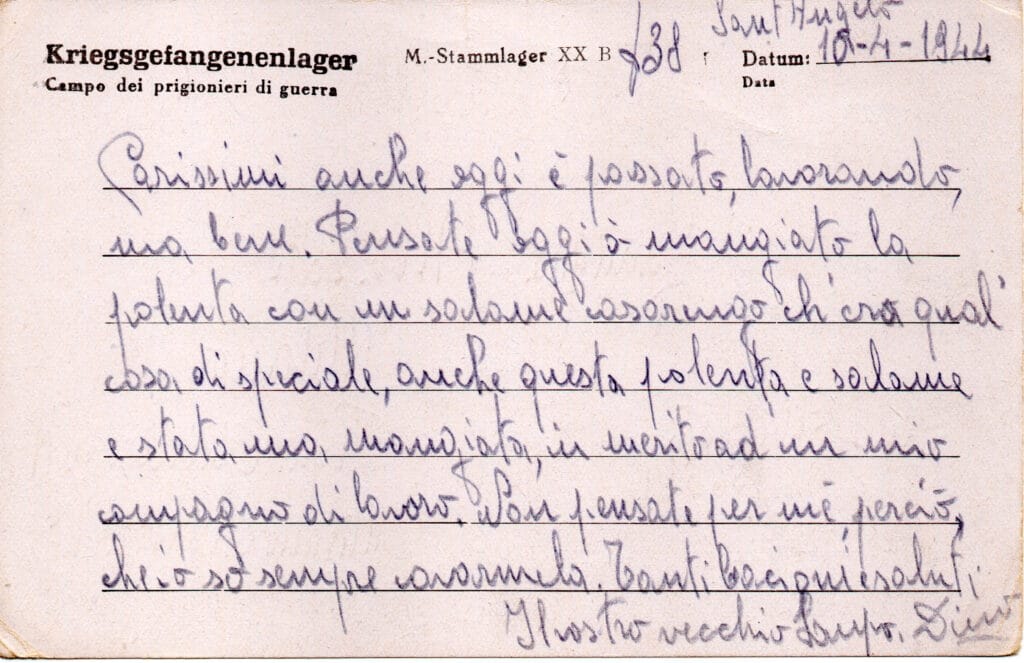 Sant'Angelo
Kriegsgefangenenlager M.-Stammlager XX B 738 Datum: 10-4-1944
Campo dei prigionieri di guerra Data
Carissimi anche oggi è passato, lavorando,
ma bene. Pensate oggi ò mangiato la
polenta con un salame casarengo ch'era qual'
cosa di speciale, anche questa polenta e salame
e stata una mangiata, in merito ad un mio
compagno di lavoro. Non pensate per mè perciò,
che io sò sempre cavarmela. Tanti bacioni e saluti
Il vostro vecchio Dino